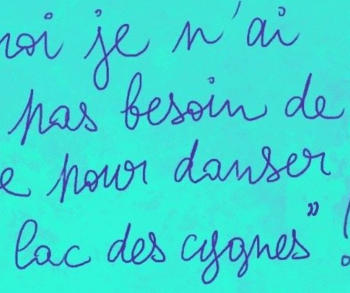 moi je n'ai
pas besoin de
pour danser
lac des cygnes" !